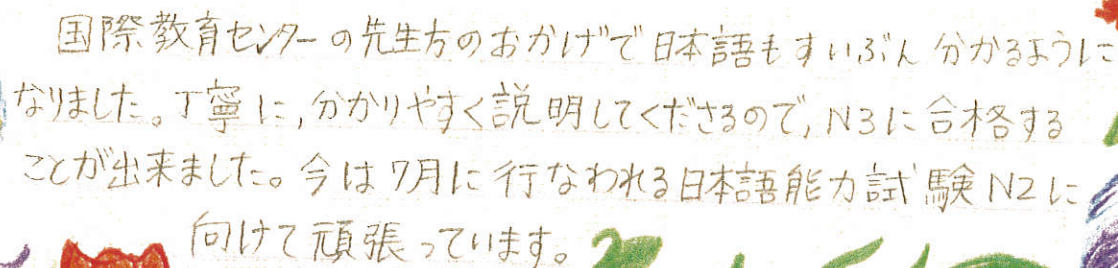 国際教育センターの先生方のおかげで日本語もすいぶん分かるように
なりました。丁寧に,分かりやすく説明してくださるので,N3に合格する
ことが出来ました。今は7月に行なわれる日本語能力試験N2に
向けて頑張っています。